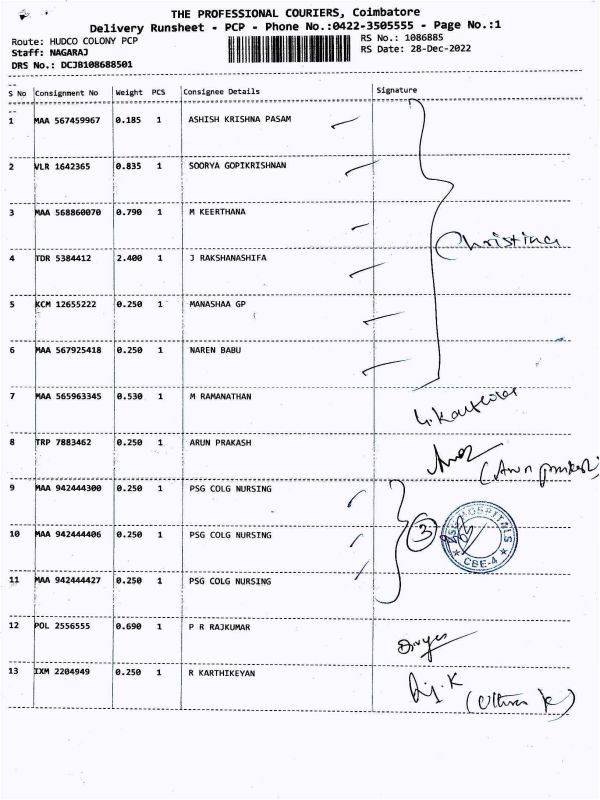 THE PROFESSIONAL COURIERS, Coimbatore
Delivery Runsheet - PCP - Phone No.:0422-3505555 - Page No.:1
Route: HUDCO COLONY PCP RS No.: 1086885
Staff: NAGARAJ RS Date: 28-Dec-2022
DRS No.: DCJB108688501
S No Consignment No Weight PCS Consignee Details Signature
1 MAA 567459967 0.185 1 ASHISH KRISHNA PASAM
2 VLR 1642365 0.835 1 SOORYA GOPIKRISHNAN
3 MAA 568860070 0.790 1 M KEERTHANA
Christina
4 TDR 5384412 2.400 1 J RAKSHANASHIFA
5 KCM 12655222 0.250 1 MANASHAA GP
6 MAA 567925418 0.250 1 NAREN BABU
7 MAA 565963345 0.530 1 M RAMANATHAN
8 TRP 7883462 0.250 1 ARUN PRAKASH
(Arun prakash)
9 MAA 942444300 0.250 1 PSG COLG NURSING
10 MAA 942444406 0.250 1 PSG COLG NURSING 3
HOSPITALS
CBE-4
11 MAA 942444427 0.250 1 PSG COLG NURSING
12 POL 2556555 0.690 1 P R RAJKUMAR
13 IXM 2204949 0.250 1 R KARTHIKEYAN